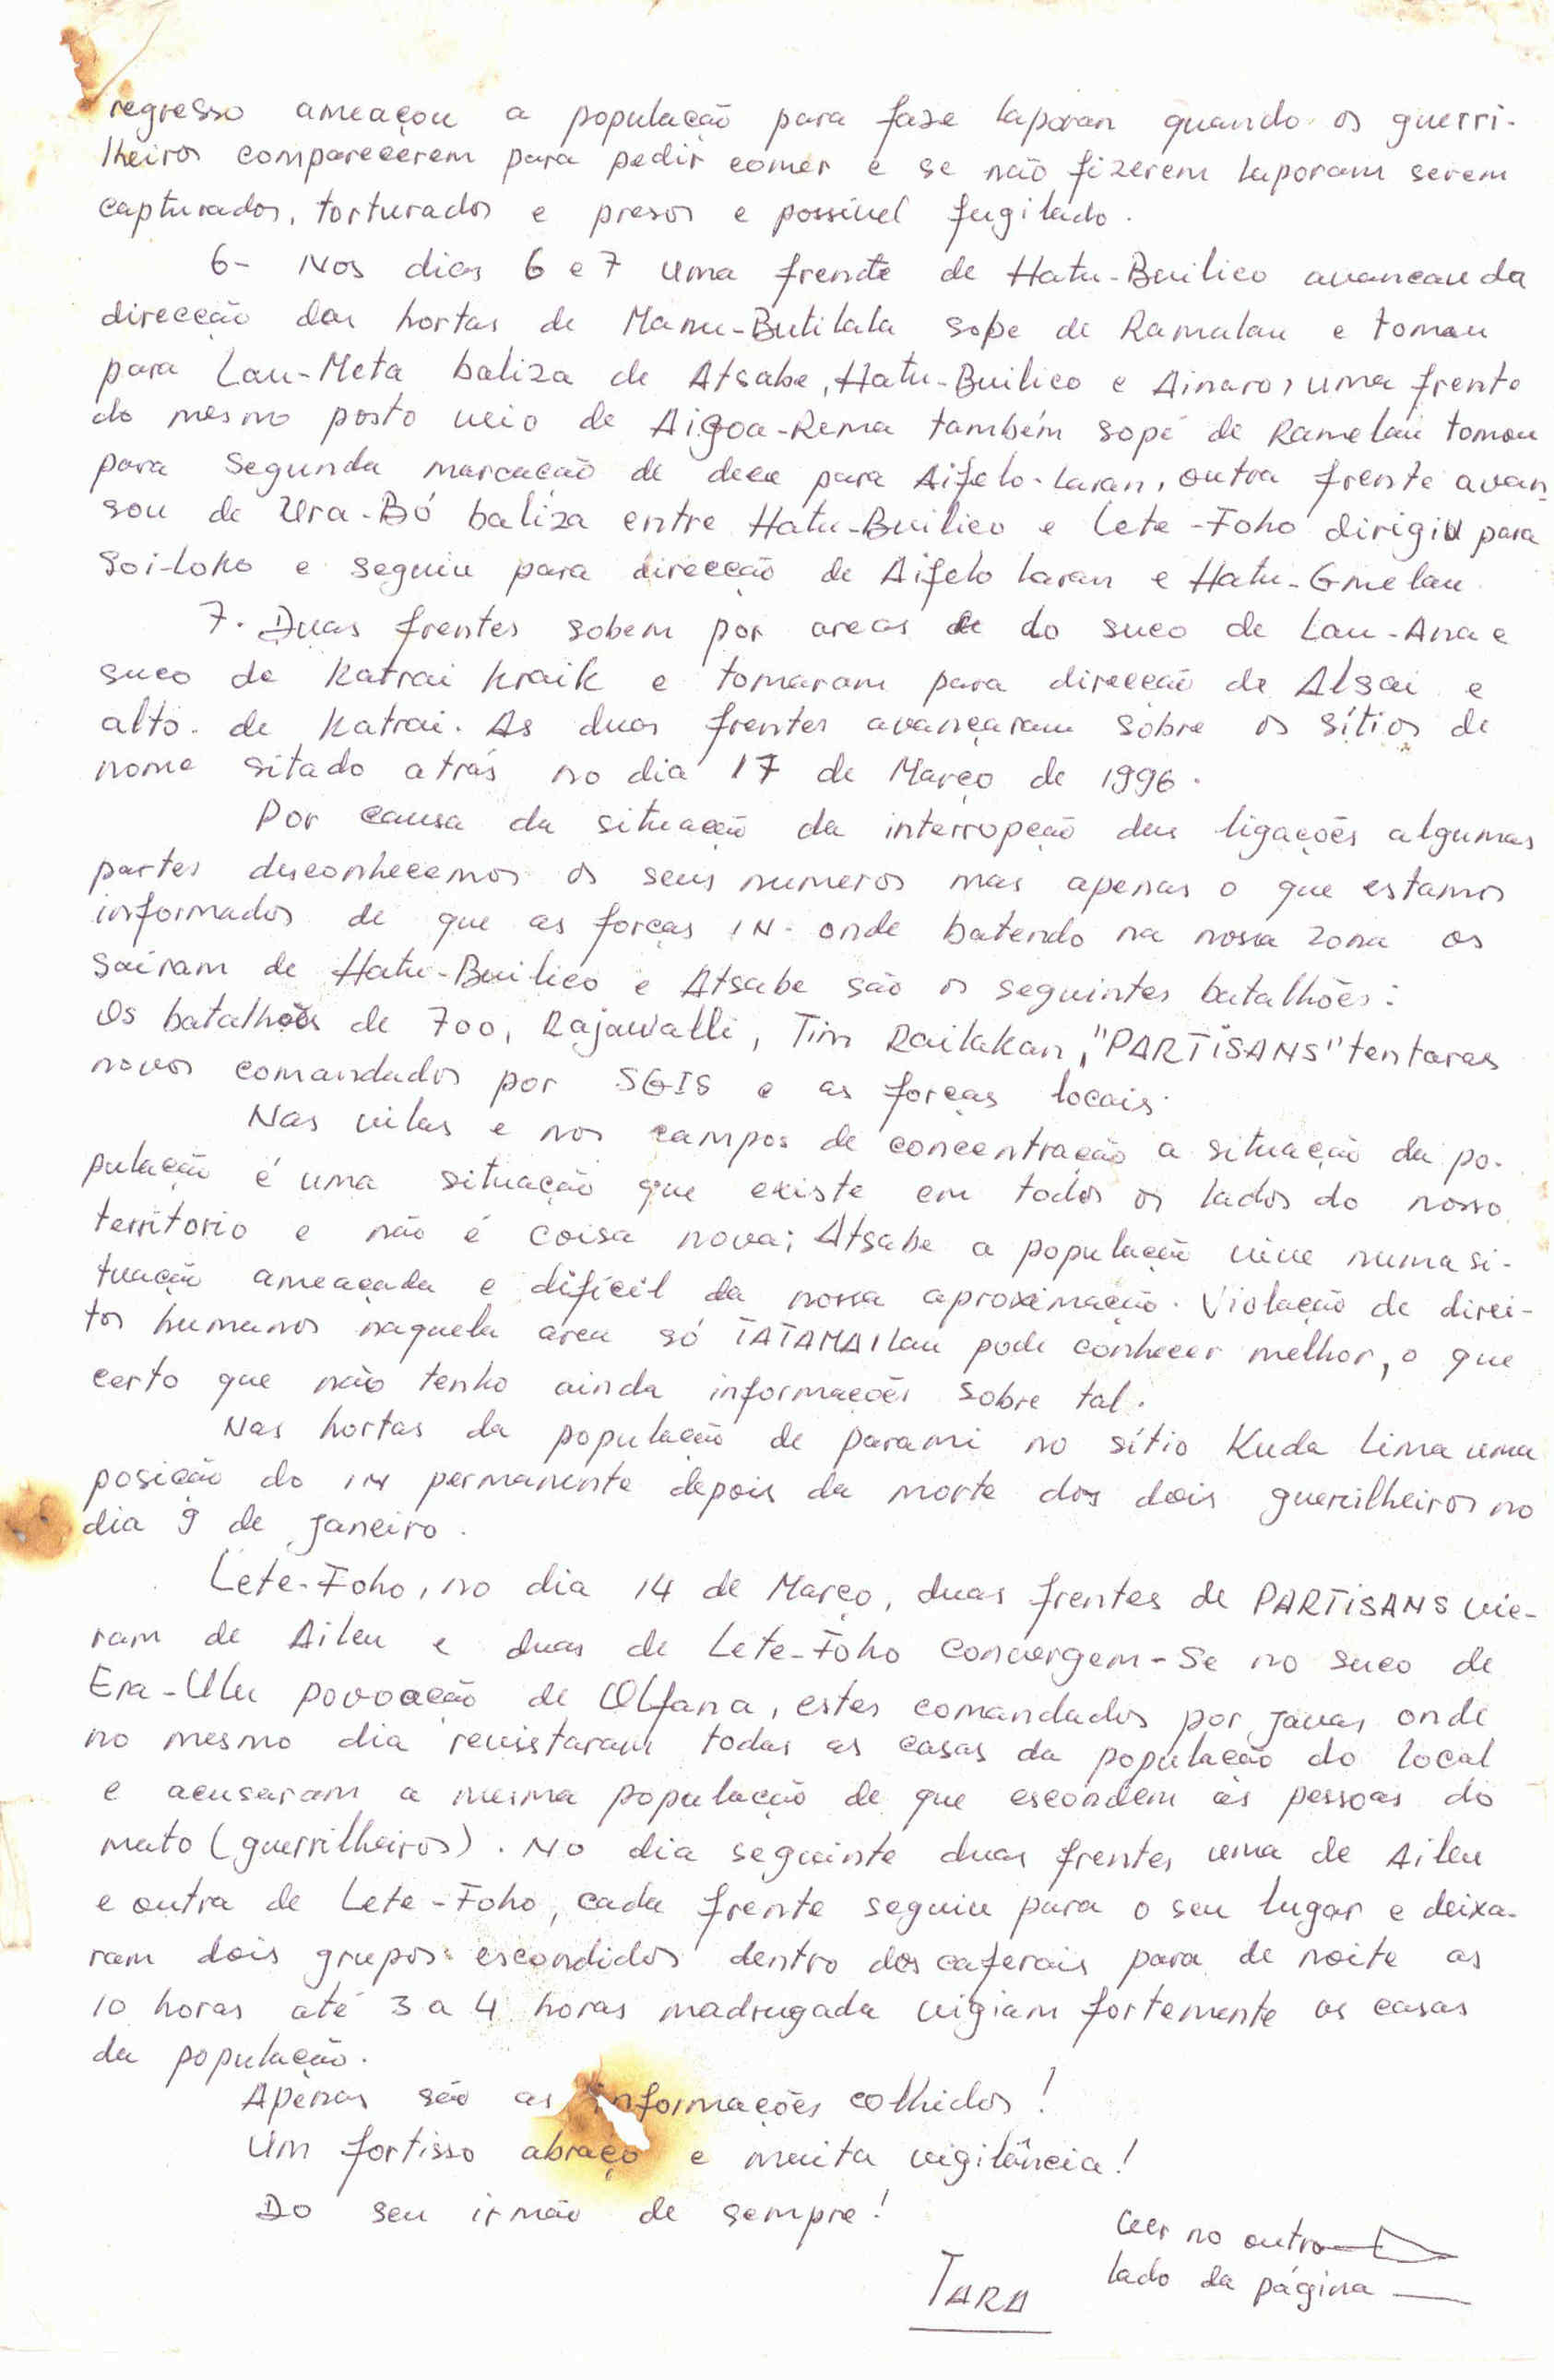 regresso ameaçou a população para faze laporan quando os guerri-
lheiros comparecerem para pedir comer e se não fizerem laporam serem
capturados, torturados e presos e possível fugilado.
6- Nos dias 6 e 7 uma frente de Hatu-Builico avancau da
direcção das hortas de Manu-Butilala sope de Ramalau e tomau
para Lau-Meta baliza de Atsabe, Hatu-Builico e Ainaro, uma frente
do mesmo posto veio de Aigoa-Rema também sopé de Ramelau tomou
para segunda marcação de dece para Aifelo-laran, outra frente avan
sou de Ura-Bó baliza entre Hatu-Builico e Lete-Foho dirigiu para
Soi-loko e seguiu para direcção de Aifelo laran e Hatu-Gmelau.
7. Duas frentes sobem por areas do suco de Lau-Ana e
suco de Katrai kraik e tomaram para direcção de Alsai e
alto de Katrai. As duas frentes avançaram sobre os sítios de
nome sitado atrás no dia 17 de Março de 1996.
Por causa da situação da interropção das ligações algumas
partes desconhecemos os seus numeros mas apenas o que estamos
informados de que as forças IN. onde batendo na nossa zona os
sairam de Hatu-Builico e Atsabe são os seguintes batalhões:
Os batalhões de 700, Rajawalli, Tim Railakan, "PARTiSANS" tentaras
novos comandados por SGIS e as forças locais.
Nas vilas e nos campos de concentração a situação da po-
pulação é uma situação que existe em todos os lados do nosso
territorio e não é coisa nova; Atsabe a população vive numa si-
tuação ameaçada e difícil da nossa aproximação. Violação de direi-
tos humanos naquela area só TATAMAILau pode conhecer melhor, o que
certo que não tenho ainda informações sobre tal.
Nas hortas da população de parami no sítio Kuda Lima uma
posição do IN permanente depois da morte dos dois guerrilheiros no
dia 9 de Janeiro.
Lete-Foho, no dia 14 de Março, duas frentes de PARTiSANS vie-
ram de Aileu e duas de Lete-Foho convergem-se no suco de
Era-Ulu povoação de Olfana, estes comandados por javas onde
no mesmo dia revistaram todas as casas da população do local
e acusaram a mesma população de que escondem as pessoas do
mato (guerrilheiros). No dia seguinte duas frentes uma de Aileu
e outra de Lete-Foho, cada frente seguiu para o seu lugar e deixa-
ram dois grupos escondidos dentro dos caferais para de noite as
10 horas até 3 a 4 horas madrugada vigiam fortemente as casas
da população.
Apenas são as informações colhidos!
Um fortisso abraço e muita vigilância!
Do seu irmão de sempre!
Ler no outro
lado da página
TARA